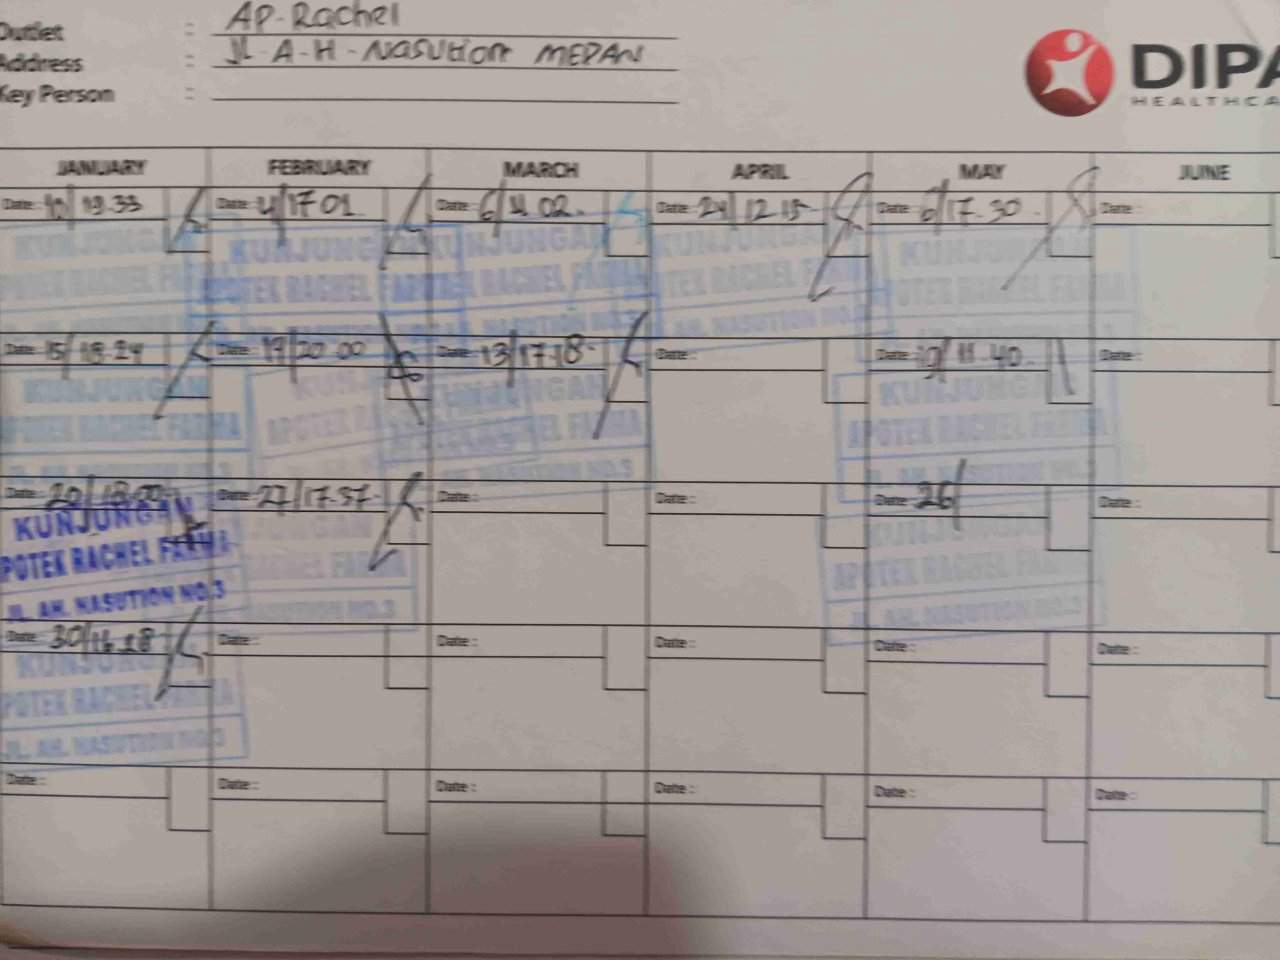 Outlet : AP-Rachel
Address : JL-A-H-Nasution MEDAN
Key Person :
DIPA
HEALTHCA
JANUARY FEBRUARY MARCH APRIL MAY JUNE
Date: 10/ 19.33 Date: 4/17 01 Date: 6/ 02 Date: 24/12.15 Date: 6/17.30 Date:
KUNJUNGAN KUNJUNGAN KUNJUNGAN KUNJUNGAN KUNJUNGAN
APOTEK RACHEL FARMA APOTEK RACHEL FARMA APOTEK RACHEL FARMA APOTEK RACHEL APOTEK RACHEL FARMA
AH. NASUTION NO.
Date: 15/ 18.24 Date: 19/20.00 Date: 13/17.18 Date: Date: 19/ 11.40 Date:
KUNJUNGAN KUNJUNGAN KUNJUNGAN
APOTEK RACHEL FARMA APOTEK RACHEL FARMA APOTEK RACHEL FARMA
JL. AH. NASUTION NO.3 JL. AH. NASUTION NO.3
Date: 20/18.00 Date: 27/17.37 Date: Date: Date: 26/ Date:
KUNJUNGAN KUNJUNGAN KUNJUNGAN
POTEK RACHEL FARMA RACHEL FARMA APOTEK RACHEL FARMA
JL. AH. NASUTION NO.3 NASUTION NO.3 JL. AH. NASUTION NO.3
Date: 30/16.28 Date: Date: Date: Date: Date:
KUNJUNGAN
POTEK RACHEL FARMA
JL. AH. NASUTION NO.3
Date: Date: Date: Date: Date: Date: